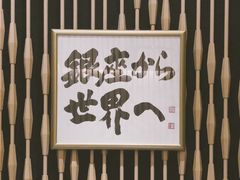 銀座から
世界へ